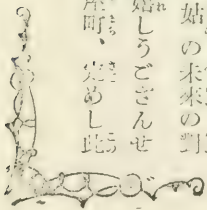 姑の未來の對
嬉しうござんせ
町、覚めし此